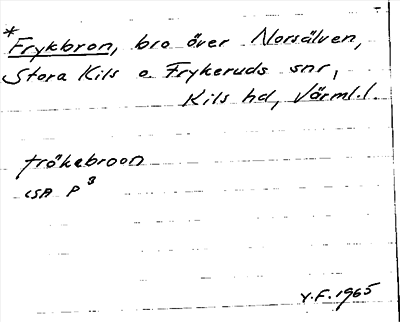 * Frykbron, bro över Norsälven,
Stora Kils o Frykeruds snr,
Kils hd, Värml. l.
frökebroon
LSA P 3
Y.F. 1965